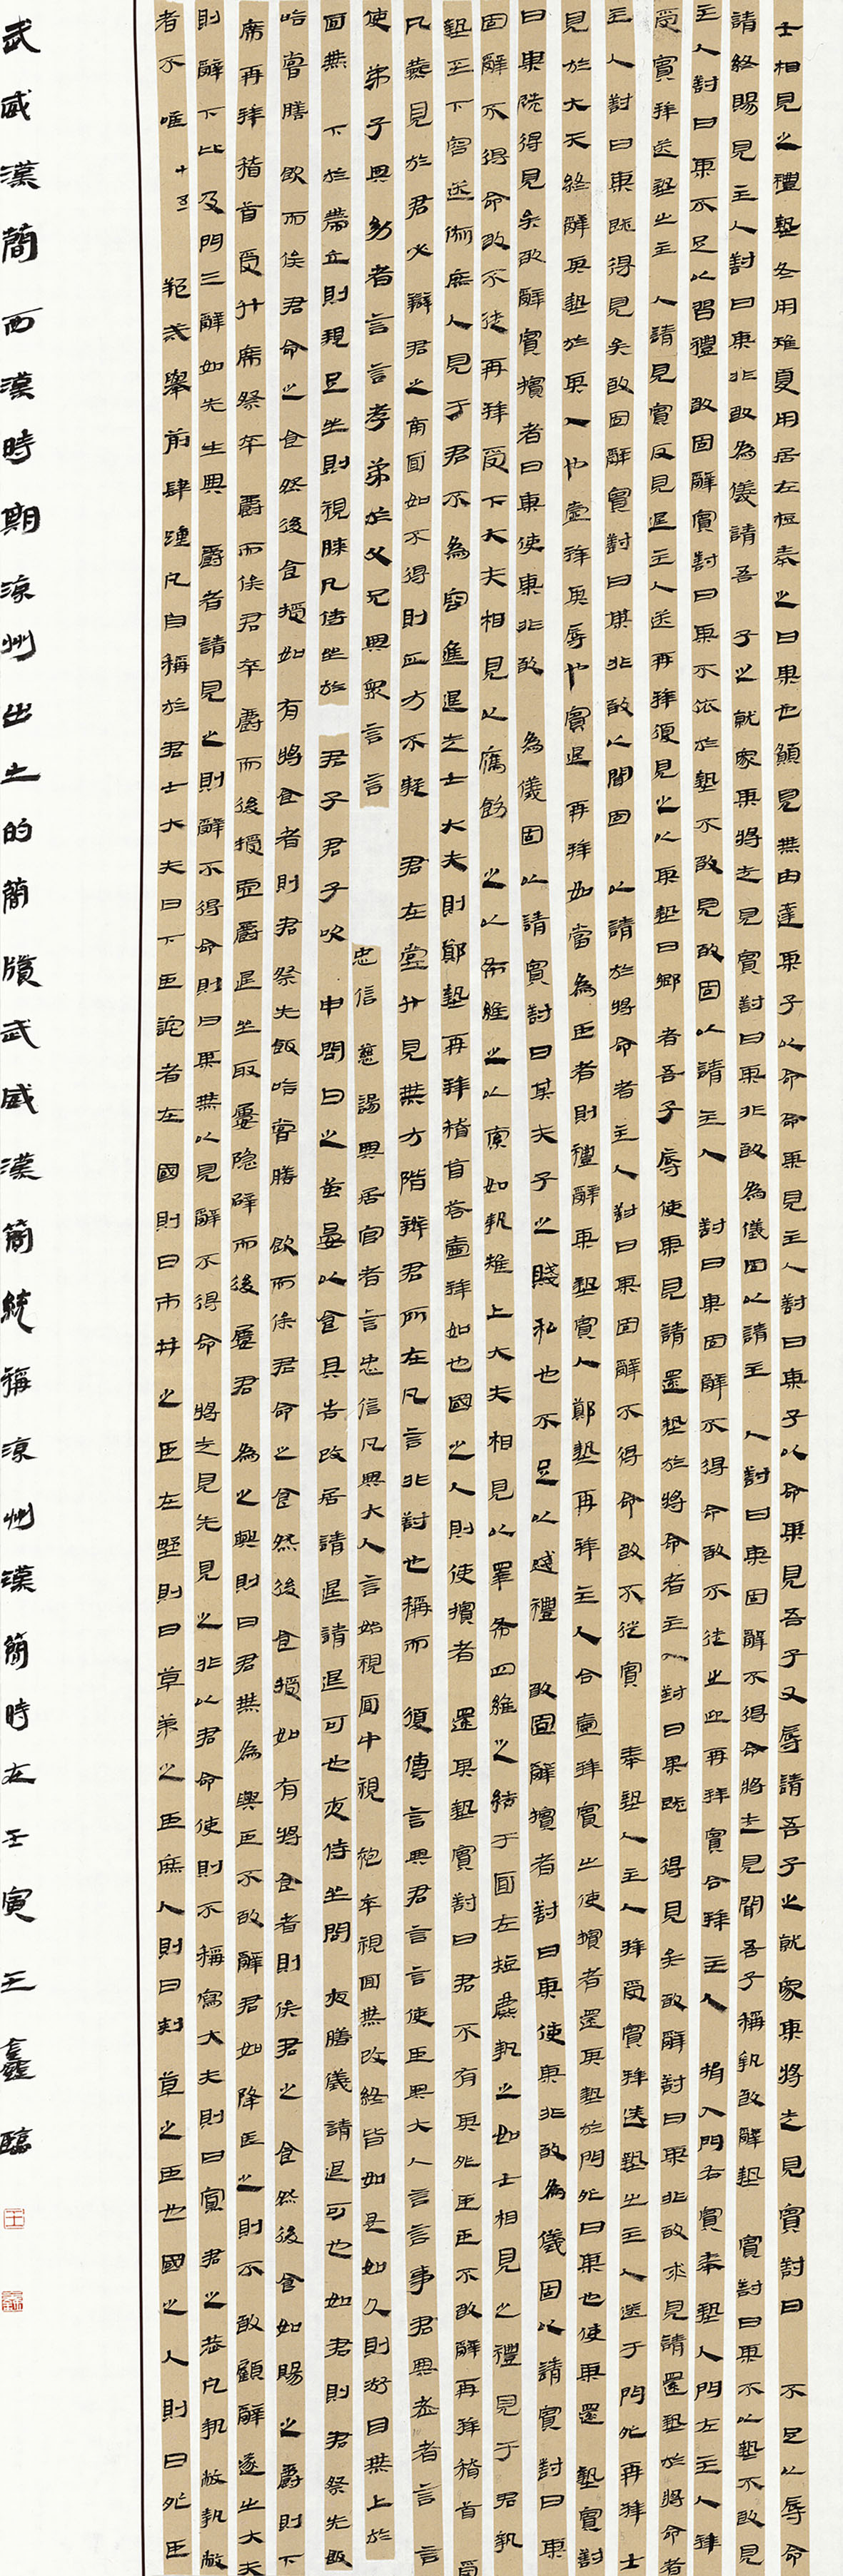 士相見之禮摯冬用雉夏用居左梪奉之曰某也願見無由達某子以命命某見主人對曰某子以命某見吾子又辱請吾子之就家某將走見賓對曰不足以辱命
請終賜見主人對曰某非敢為儀請吾子之就家某將走見賓對曰某非敢為儀固以請主人對曰某固辭不得命將走見聞吾子稱執敢辭摯賓對曰某不以摯不敢見
主人對曰某不足以習禮敢固辭賓對曰某不依於摯不敢見敢固以請主人對曰某固辭不得命敢不從出迎再拜賓合拜主人揖入門右賓奉摯入門左主人拜
受賓拜送摯出主人請見賓反見退主人送再拜復見之以其摯曰鄉者吾子辱使某見請還摯於將命者主人對曰某既得見矣敢辭對曰某非敢求見請還摯於將命者
主人對曰某既得見矣敢固辭賓對曰某非敢以聞固以請於將命者主人對曰某固辭不得命敢不從賓奉摯入主人拜受賓拜送摯出主人送于門外再拜士
見於大夫終辭其摯於其入也壹拜其辱也賓退再拜如當為臣者則禮辭其摯賓入鄭摯再拜主人合壹拜賓出使擯者還其摯於門外曰某也使某還摯賓對
曰某既得見矣敢辭賓擯者曰某使某非敢為儀固以請賓對曰某夫子之賤私也不足以踐禮敢固辭擯者對曰某使某非敢為儀固以請賓對曰某
固辭不得命敢不從再拜受下大夫相見以鴈飭之以布維之以索如執雉上大夫相見以羔布四維之結于面左短麛執之如士相見之禮見于君執
摯至下容送俶庶人見于君不為容進退走士大夫則鄭摯再拜稽首答壹拜如也國之人則使擯者還其摯賓對曰君不有其外臣臣不敢辭再拜稽首受
凡燕見於君必辯君之南面如不得則正方不疑君在堂升見無方階辨君所在凡言非對也稱而須傳言與君言言使臣與大人言言事君與老者言言
使弟子與幼者言言孝弟於父兄與眾言言忠信慈謁與居官者言忠信凡與大人言始視面中視袍卒視面無改終皆如是如父則游目無上於
面無下於帶立則視足坐則視膝凡侍坐於君子君子吹申問曰之蚤晏以食具告改居請退請退可也夜侍坐問夜膳儀請退可也如君則君祭先飯
哈嘗膳飲而俟君命之食然後食授如有將食者則君祭先飯哈嘗膳飲而俟君命之食然後食授如有將食者則俟君之食然後食如賜之爵則下
席再拜稽首受升席祭卒爵而俟君卒爵而後授虛爵退坐取屨隱辟而後屨君為之興則曰君無為興臣不敢辭君如降送之則不敢顧辭遂出大夫
則辭下比及門三辭如先生與爵者請見之則辭不得命則曰某無以見辭不得命將走見先見之非以君命使則不稱寡大夫則曰寡君之恭凡執敝執敝
者不唯十三軛袤舉前肆踵凡自稱於君士大夫曰下臣詫者在國則曰市井之臣在野則曰草茅之臣庶人則曰刺草之臣也國之人則曰外臣
武威漢簡西漢時期涼州出土的簡牘武威漢簡統稱涼州漢簡時在壬寅王鑫臨